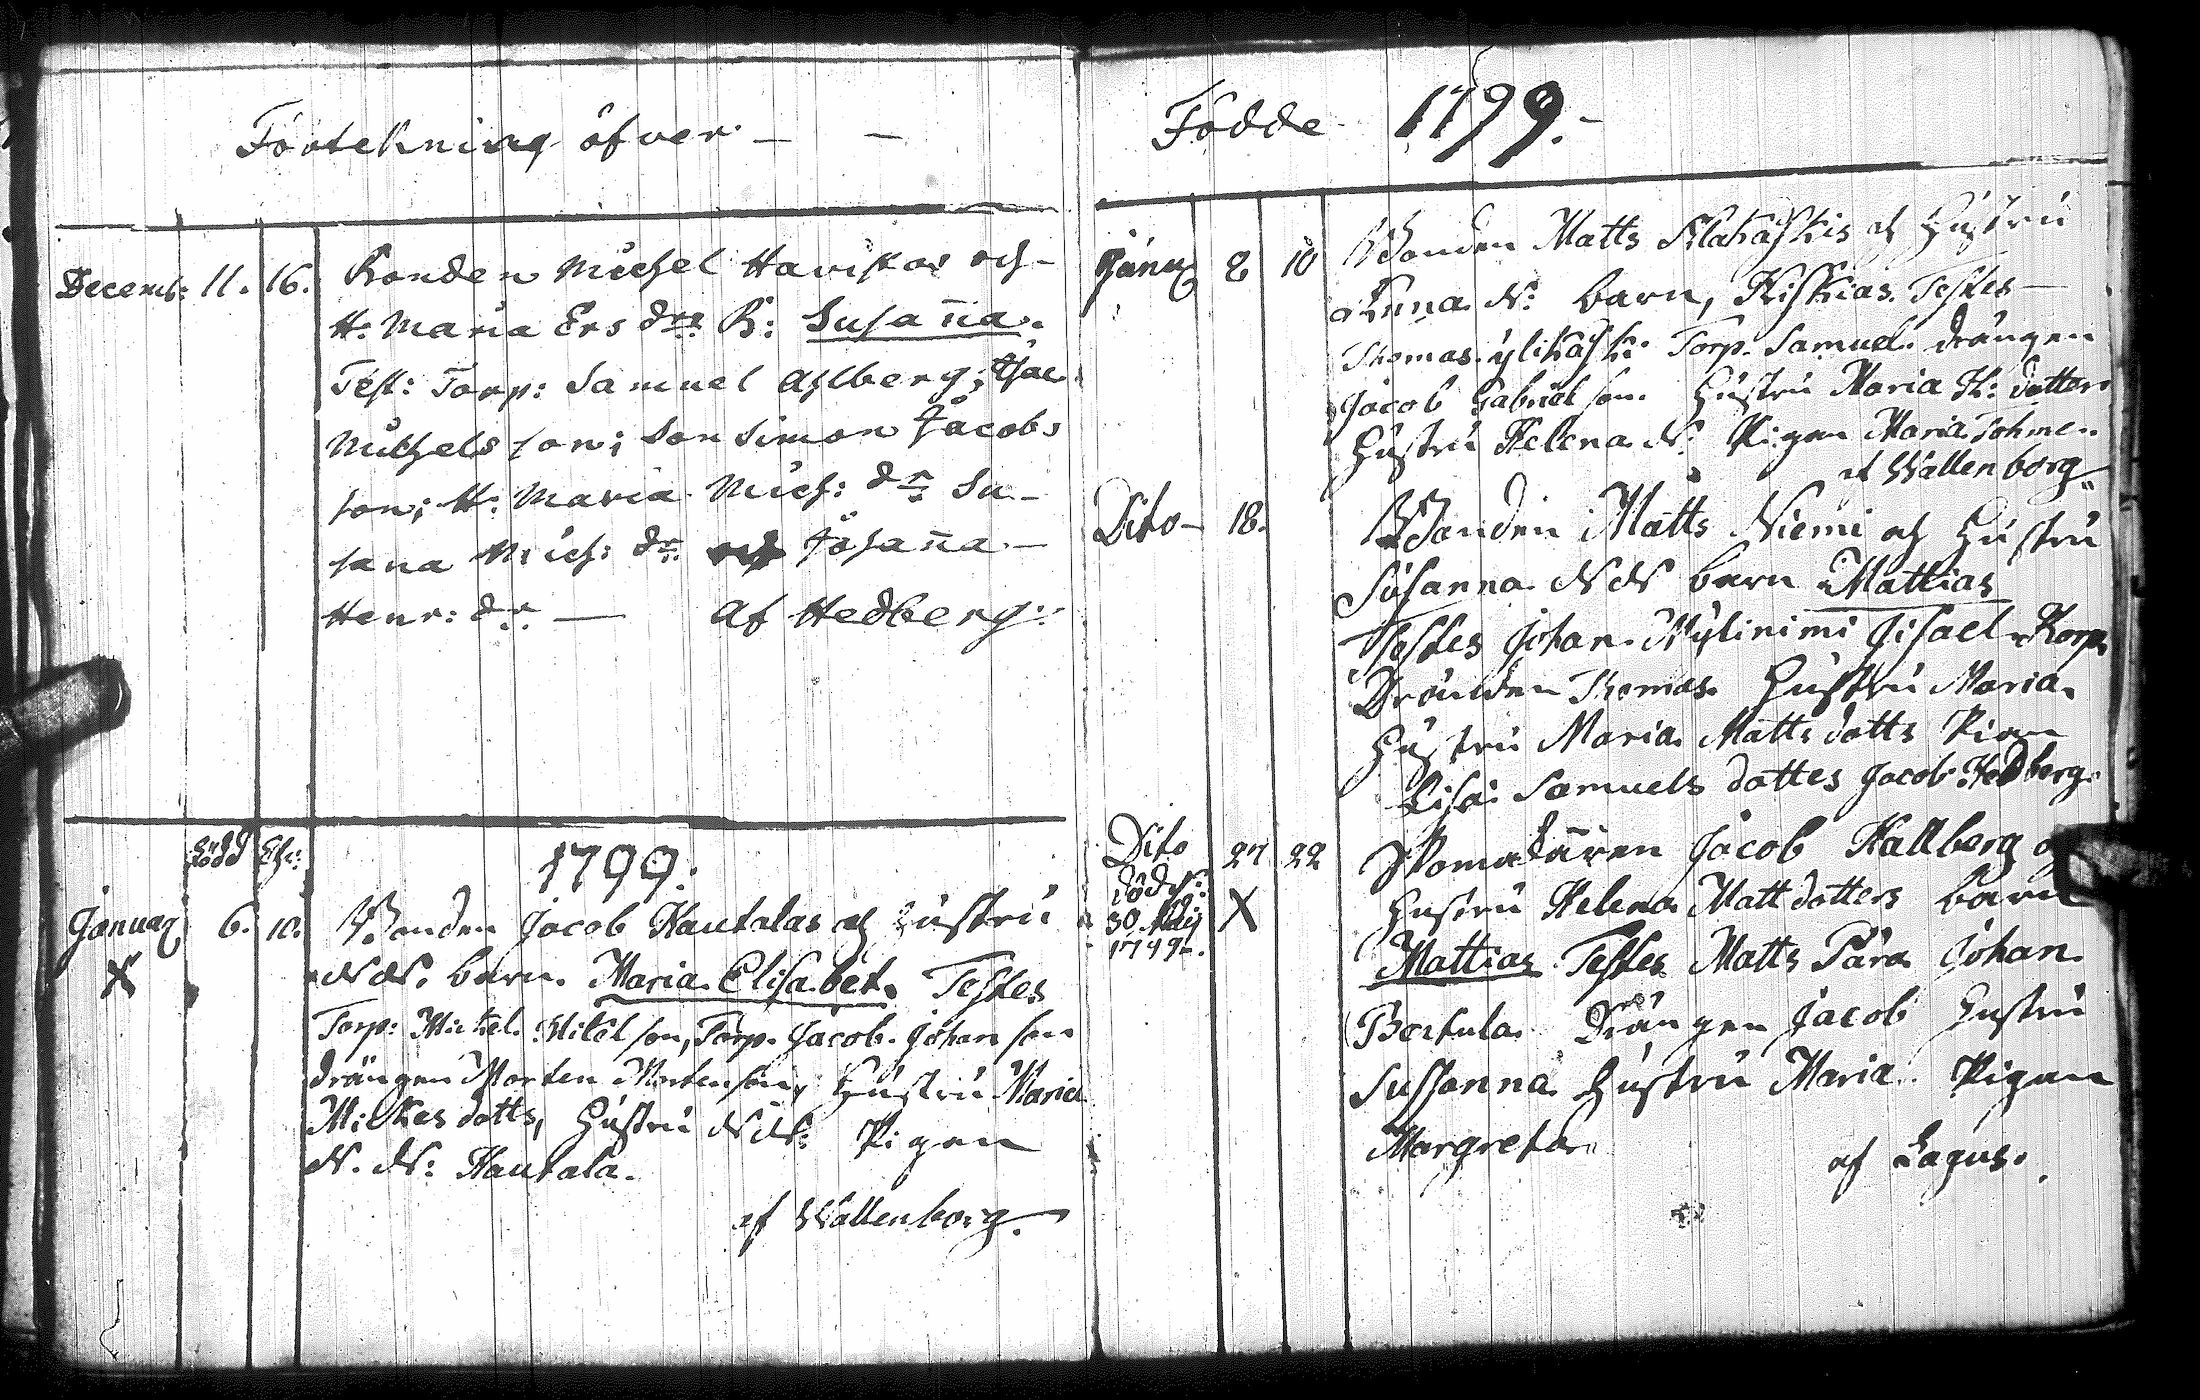 Förtekning öfver — —
Decemb: 11. 16. Bonden Michel Haviskos och
H. Maria Ers drs B: Susaña.
Test: Torp: Samuel Ahlberg; Isac
Michels son; Son Simon Jacobs
son; H. Maria Mich: dr Su-
sana Mich: dr och Josaña
Henr: dr. — af Hedberg:
Född Chr:
1799.
Januar 6. 10. Bonden Jacob Hautalas och Hustru
X N N. barn. Maria Elisabet. Testes
Torp: Michel Mikelson, Torp. Jacob Johan son
drängen Morten Mortenson, Hustru Maria
Mickes dotts, Hustru N N: Pigen
N. N: Hautala.
af Wallenborg.
Födde 1799.-
Januar 8 10 Bonden Matts och Hustru
Anna N: barn, Testes
Thomas Torp. Samuel drängen
Jacob Gabriel son Hustru Maria Th: dotter
Hustru Helena N: Pigan Maria
af Wallenborg
Dito 18. Bonden Matts Niemi och Hustru
Susanna N N barn Mattias
Testes Johan Gisael Korp
Drängen Thomas Hustru Maria
Hustru Maria Matts dotts Pigan
Lisa Samuels dottes Jacob Hedberg.
Dito 27 22 Jacob Hallberg
dödde: X Hustru Helena Matt dotters barn
30 Maij Mattias Testes Matts Pära Johan
1799. Bertula Drängen Jacob Hustru
Sussanna Hustru Maria Pigan
Margreta
af Lagus.